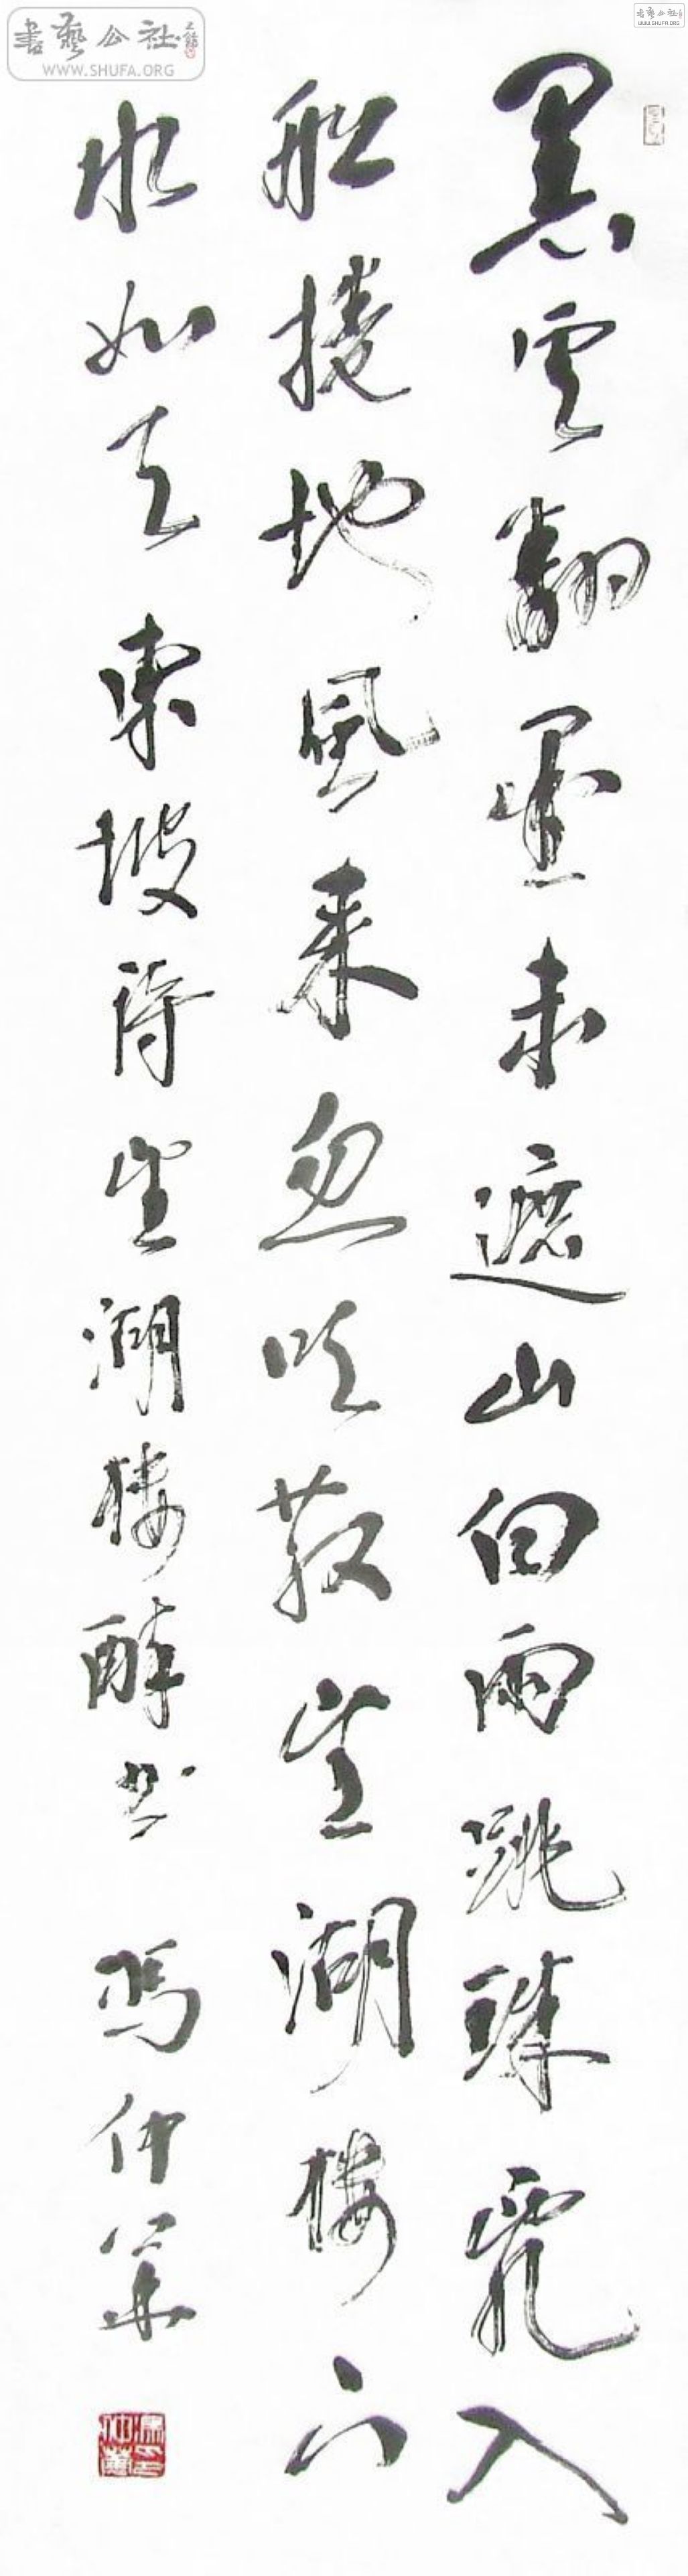 書藝公社
WWW.SHUFA.ORG
黑雲翻墨未遮山白雨跳珠亂入
船捲地風來忽吹散望湖樓下
水如天 東坡詩望湖樓醉書 馮仲華